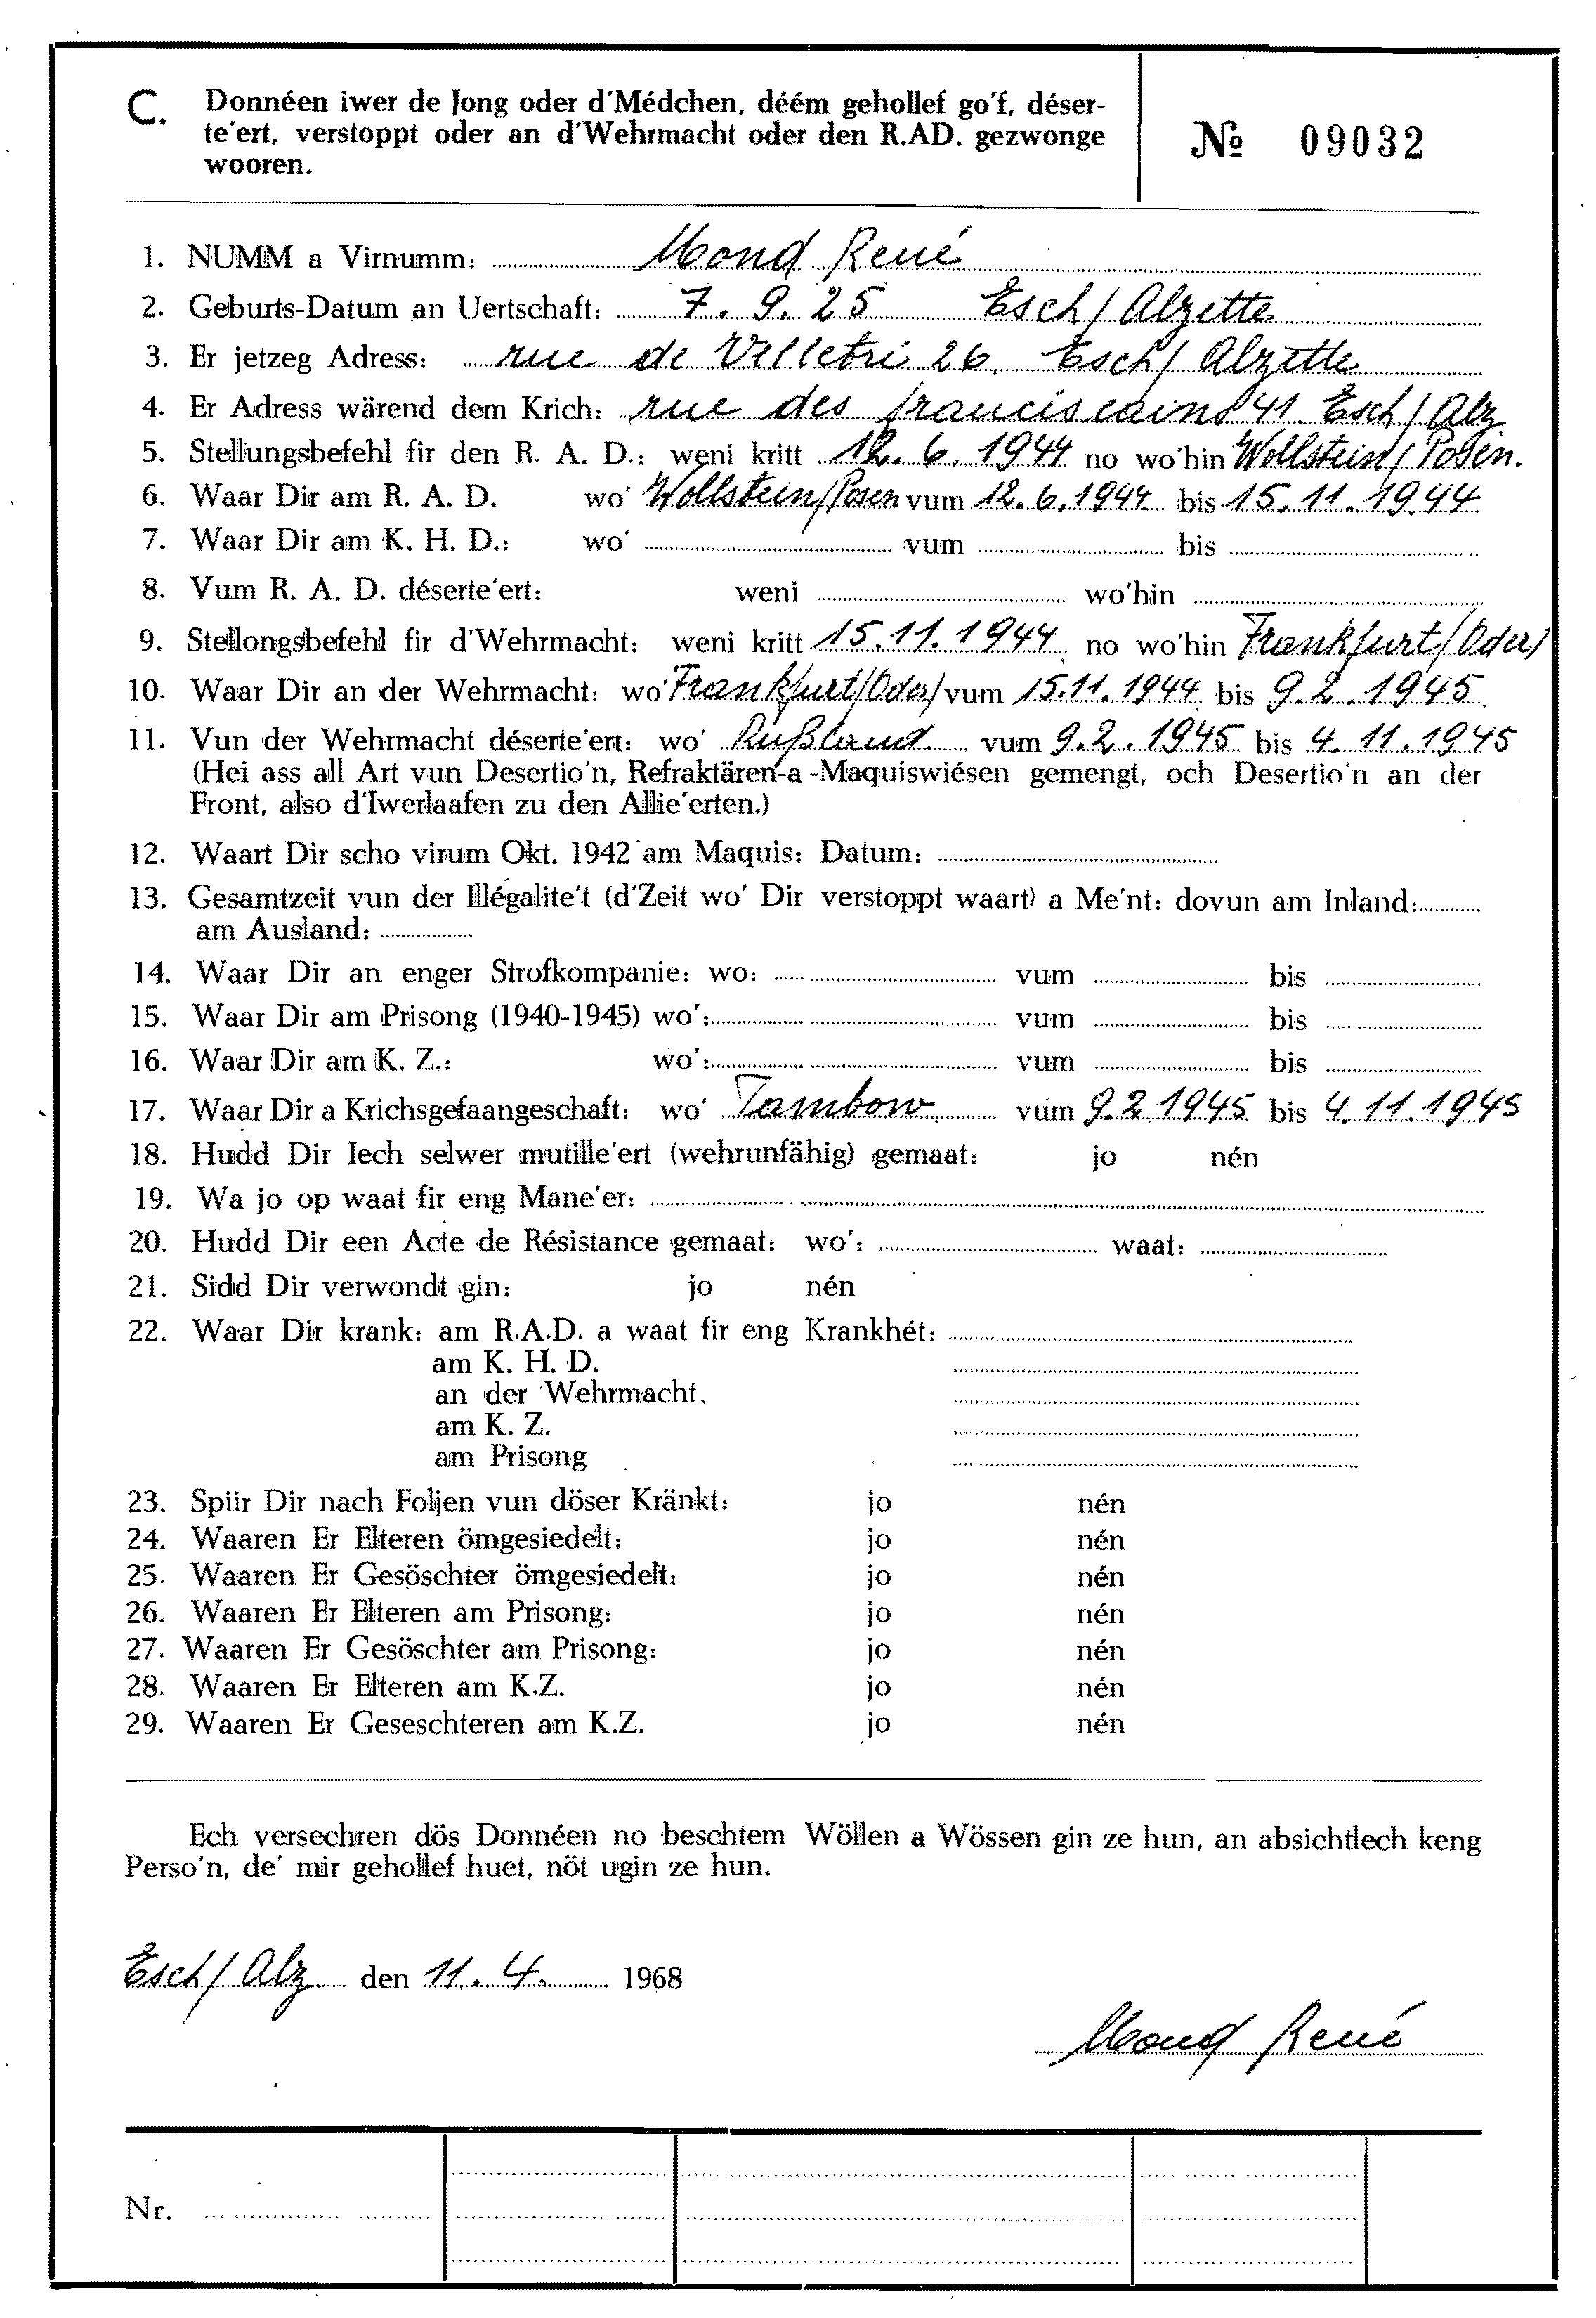 C. Donnéen iwer de Jong oder d'Médchen, déém gehollef go'f, déser-
te'ert, verstoppt oder an d'Wehrmacht oder den R.AD. gezwonge
wooren.
№ 09032
1. NUMM a Virnumm: Mond René
2. Geburts-Datum an Uertschaft: 7. 9. 25 Esch/Alzette
3. Er jetzeg Adress: rue de Velletri 26. Esch/Alzette
4. Er Adress wärend dem Krich: rue des franciscains 41. Esch/Alz
5. Stellungsbefehl fir den R. A. D.: weni kritt 12. 6. 1944 no wo'hin Wollstein/Posen.
6. Waar Dir am R. A. D. wo' Wollstein/Posen vum 12. 6. 1944 bis 15. 11. 1944
7. Waar Dir am K. H. D.: wo' vum bis
8. Vum R. A. D. déserte'ert: weni wo'hin
9. Stellongsbefehl fir d'Wehrmacht: weni kritt 15. 11. 1944 no wo'hin Frankfurt/Oder/
10. Waar Dir an der Wehrmacht: wo' Frankfurt/Oder/ vum 15.11.1944 bis 9. 2. 1945
11. Vun der Wehrmacht déserte'ert: wo' Rußland vum 9.2.1945 bis 4. 11. 1945
(Hei ass all Art vun Desertio'n, Refraktären-a-Maquiswiésen gemengt, och Desertio'n an der
Front, also d'Iwerlaafen zu den Allie'erten.)
12. Waart Dir scho virum Okt. 1942 am Maquis: Datum:
13. Gesamtzeit vun der Illégalite't (d'Zeit wo' Dir verstoppt waart) a Me'nt: dovun am Inland:
am Ausland:
14. Waar Dir an enger Strofkompanie: wo: vum bis
15. Waar Dir am Prisong (1940-1945) wo': vum bis
16. Waar Dir am K. Z.: wo': vum bis
17. Waar Dir a Krichsgefaangeschaft: wo' Tambow vum 9.2 1945 bis 4. 11. 1945
18. Hudd Dir Iech selwer mutille'ert (wehrunfähig) gemaat: jo nén
19. Wa jo op waat fir eng Mane'er:
20. Hudd Dir een Acte de Résistance gemaat: wo': waat:
21. Sidd Dir verwondt gin: jo nén
22. Waar Dir krank: am R.A.D. a waat fir eng Krankhét:
am K. H. D.
an der Wehrmacht.
am K. Z.
am Prisong
23. Spiir Dir nach Foljen vun döser Kränkt: jo nén
24. Waaren Er Elteren ömgesiedelt: jo nén
25. Waaren Er Gesöschter ömgesiedelt: jo nén
26. Waaren Er Elteren am Prisong: jo nén
27. Waaren Er Gesöschter am Prisong: jo nén
28. Waaren Er Elteren am K.Z. jo nén
29. Waaren Er Geseschteren am K.Z. jo nén
Ech versechren dös Donnéen no beschtem Wöllen a Wössen gin ze hun, an absichtlech keng
Perso'n, de' mir gehollef huet, nöt ugin ze hun.
Esch/Alz. den 11. 4. 1968
Mond René
Nr.